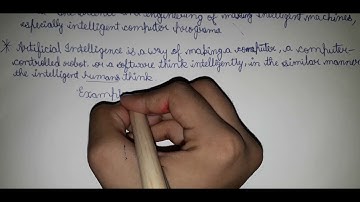 science and engineering of making intelligent machines,
especially intelligent computer programs
* Artificial Intelligence is a way of making a computer, a computer-
controlled robot, or a software think intelligently, in the similar manner
the intelligent humans think
Exampl